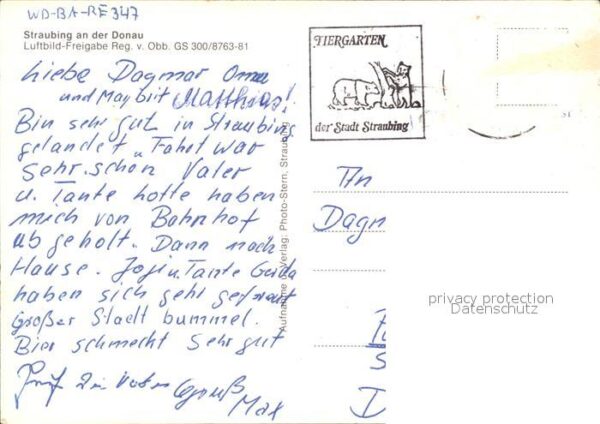 WD-BA-RE 347
Straubing an der Donau
Luftbild-Freigabe Reg. v. Obb. GS 300/8763-81
Liebe Dagmar Oma
und Maybrit Matthias!
Bin sehr gut in Straubing
gelandet Fahrt war
sehr schön Vater
u. Tante hotte haben
mich von Bahnhof
ab geholt. Dann nach
Hause. u Tante Gerda
haben sich sehr gefreut
Großer Stadt bummel.
Bier schmeckt sehr gut
Gruß Max
Aufnahme u. Verlag: Photo-Stern, Straubing
TIERGARTEN
der Stadt Straubing
An
Dagm
privacy protection
Datenschutz